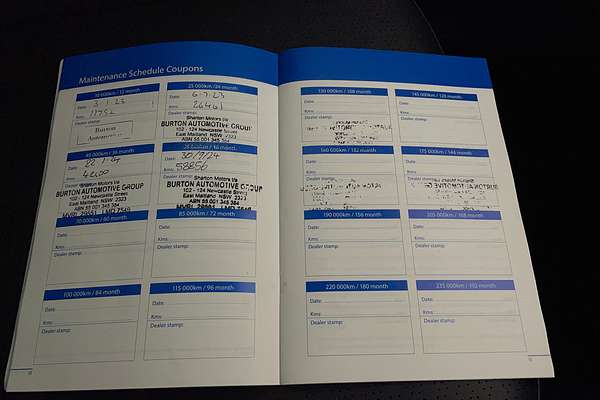 Maintenance Schedule Coupons
10 000km / 12 month
Date: 3 . 1 . 23
Kms: 11752
Dealer stamp:
BURTON
AUTOMOTIVE
25 000km / 24 month
Date: 6 . 7 . 23
Kms: 26461
Dealer stamp:
Sharton Motors t/a
BURTON AUTOMOTIVE GROUP
102 - 124 Newcastle Street
East Maitland NSW 2323
ABN 55 001 345 384
40 000km / 36 month
Date: 22 . 1 . 24
Kms: 42000
Dealer stamp:
Sharton Motors t/a
BURTON AUTOMOTIVE GROUP
102 - 124 Newcastle Street
East Maitland NSW 2323
ABN 55 001 345 384
month
Date: 30/7/24
Kms: 58856
Sharton Motors t/a
BURTON AUTOMOTIVE GROUP
102 - 124 Newcastle Street
East Maitland NSW 2323
ABN 55 001 345 384
70 000km / 60 month
Date:
Kms:
Dealer stamp:
85 000km / 72 month
Date:
Kms:
Dealer stamp:
100 000km / 84 month
Date:
Kms:
Dealer stamp:
115 000km / 96 month
Date:
Kms:
Dealer stamp:
130 000km / 108 month
Date:
Kms:
Dealer stamp:
145 000km / 120 month
Date:
Kms:
Dealer stamp:
160 000km / 132 month
Date:
Kms:
Dealer stamp:
175 000km / 144 month
Date:
Kms:
Dealer stamp:
190 000km / 156 month
Date:
Kms:
Dealer stamp:
205 000km / 168 month
Date:
Kms:
Dealer stamp:
220 000km / 180 month
Date:
Kms:
Dealer stamp:
235 000km / 192 month
Date:
Kms:
Dealer stamp: